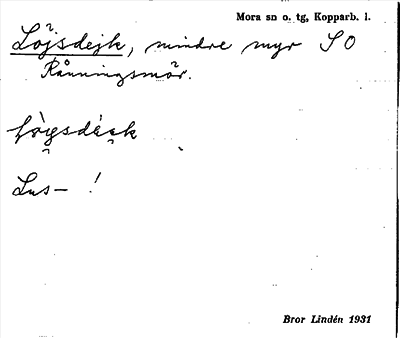 Mora sn o. tg, Kopparb. l.
Löjsdejk, mindre myr SO
Rånningsmör.
Lus- !
Bror Lindén 1931